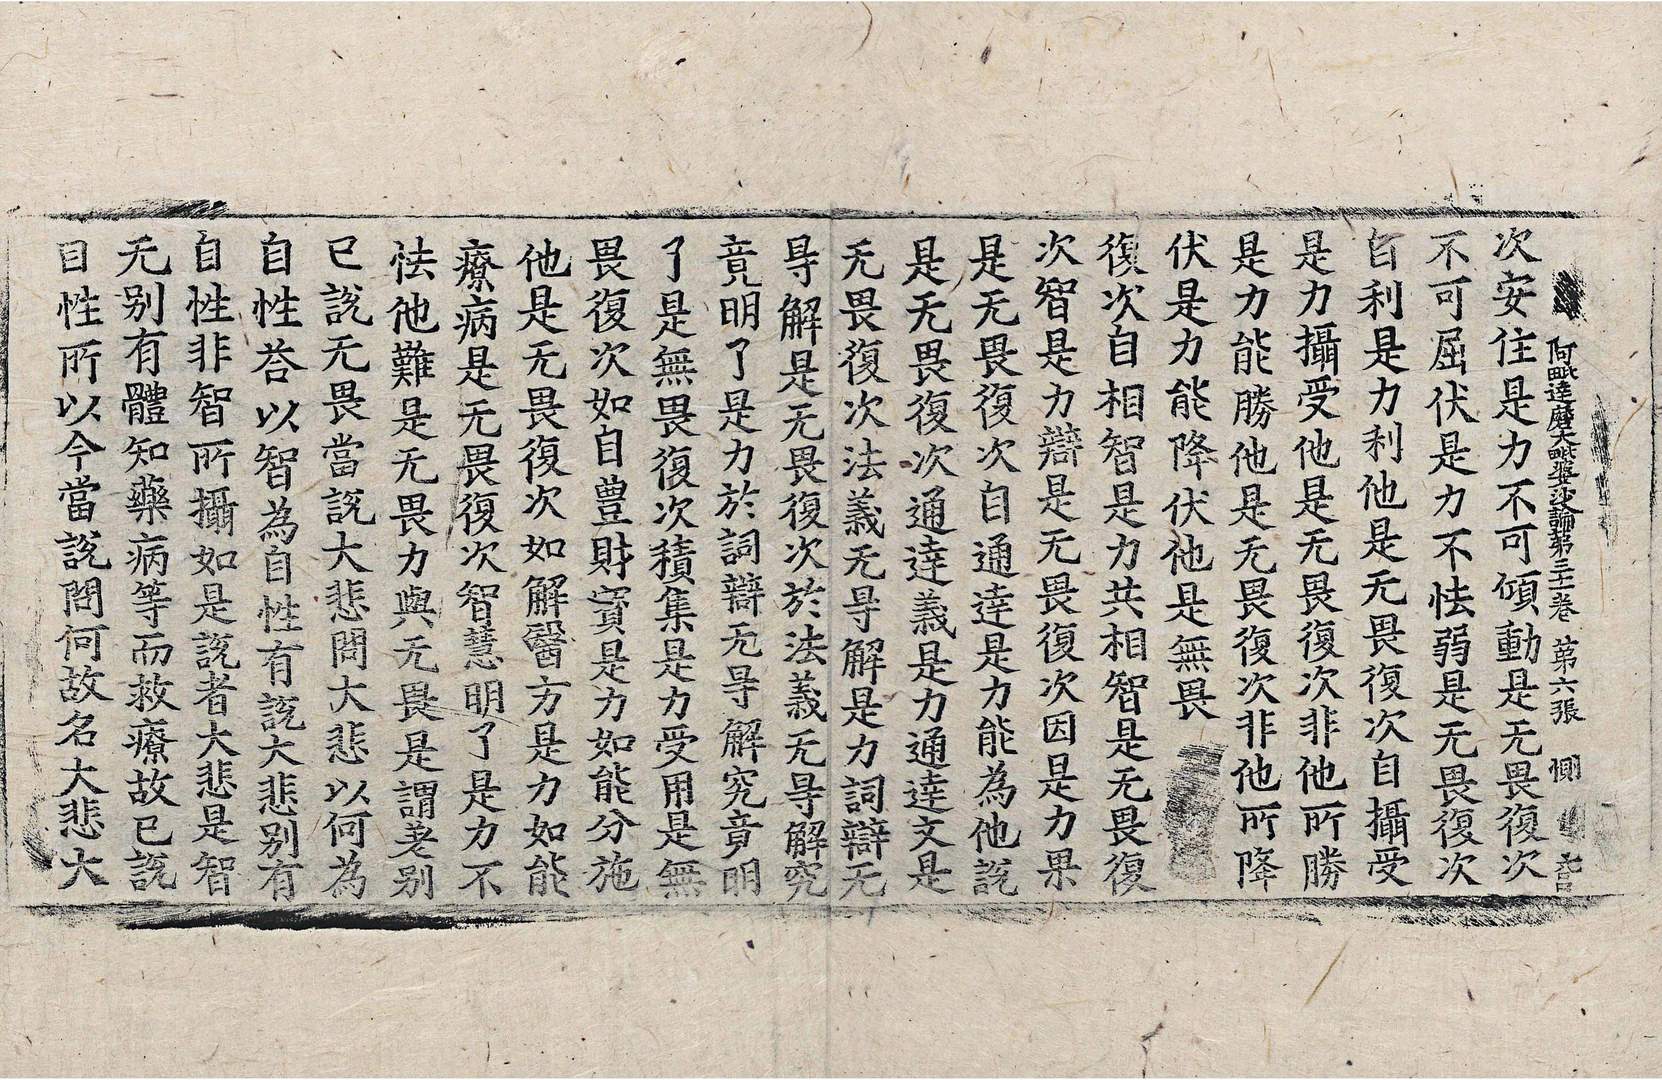 阿毗達磨大毗婆沙論第三十一卷 第六張 惻
次安住是力不可傾動是无畏復次
不可屈伏是力不怯弱是无畏復次
自利是力利他是无畏復次自攝受
是力攝受他是无畏復次非他所勝
是力能勝他是无畏復次非他所降
伏是力能降伏他是無畏
復次自相智是力共相智是无畏復
次智是力辯是无畏復次因是力果
是无畏復次自通達是力能為他說
是无畏復次通達義是力通達文是
无畏復次法義无㝵解是力詞辯无
㝵解是无畏復次於法義无㝵解究
竟明了是力於詞辯无㝵解究竟明
了是無畏復次積集是力受用是無
畏復次如自豊財寶是力如能分施
他是无畏復次如解醫方是力如能
療病是无畏復次智慧明了是力不
怯他難是无畏力與无畏是謂差别
已說无畏當說大悲問大悲以何為
自性荅以智為自性有說大悲别有
自性非智所攝如是說者大悲是智
无别有體知藥病等而救療故已說
自性所以今當說問何故名大悲大